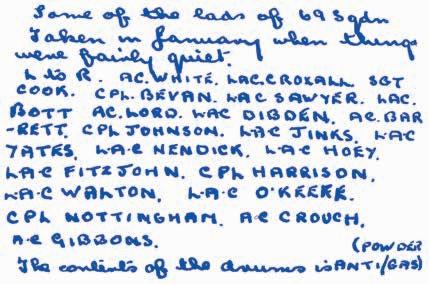 Some of the lads of 69 Sqdn
Taken in January when things
were fairly quiet.
L to R. AC. WHITE. LAC. CROXALL SGT
COOK. CPL. BEVAN. LAC SAWYER. LAC.
BOTT AC. LORD. LAC DIBDEN, AC. BAR
-RETT. CPL JOHNSON. LAC JINKS, LAC
YATES, LAC HENDICK. LAC HOEY.
LAC FITZJOHN. CPL HARRISON,
LAC WALTON. LAC O'KEEKE.
CPL NOTTINGHAM. AC CROUCH,
AC GIBBONS.
(POWDER
The contents of the drums is ANTI/GAS)